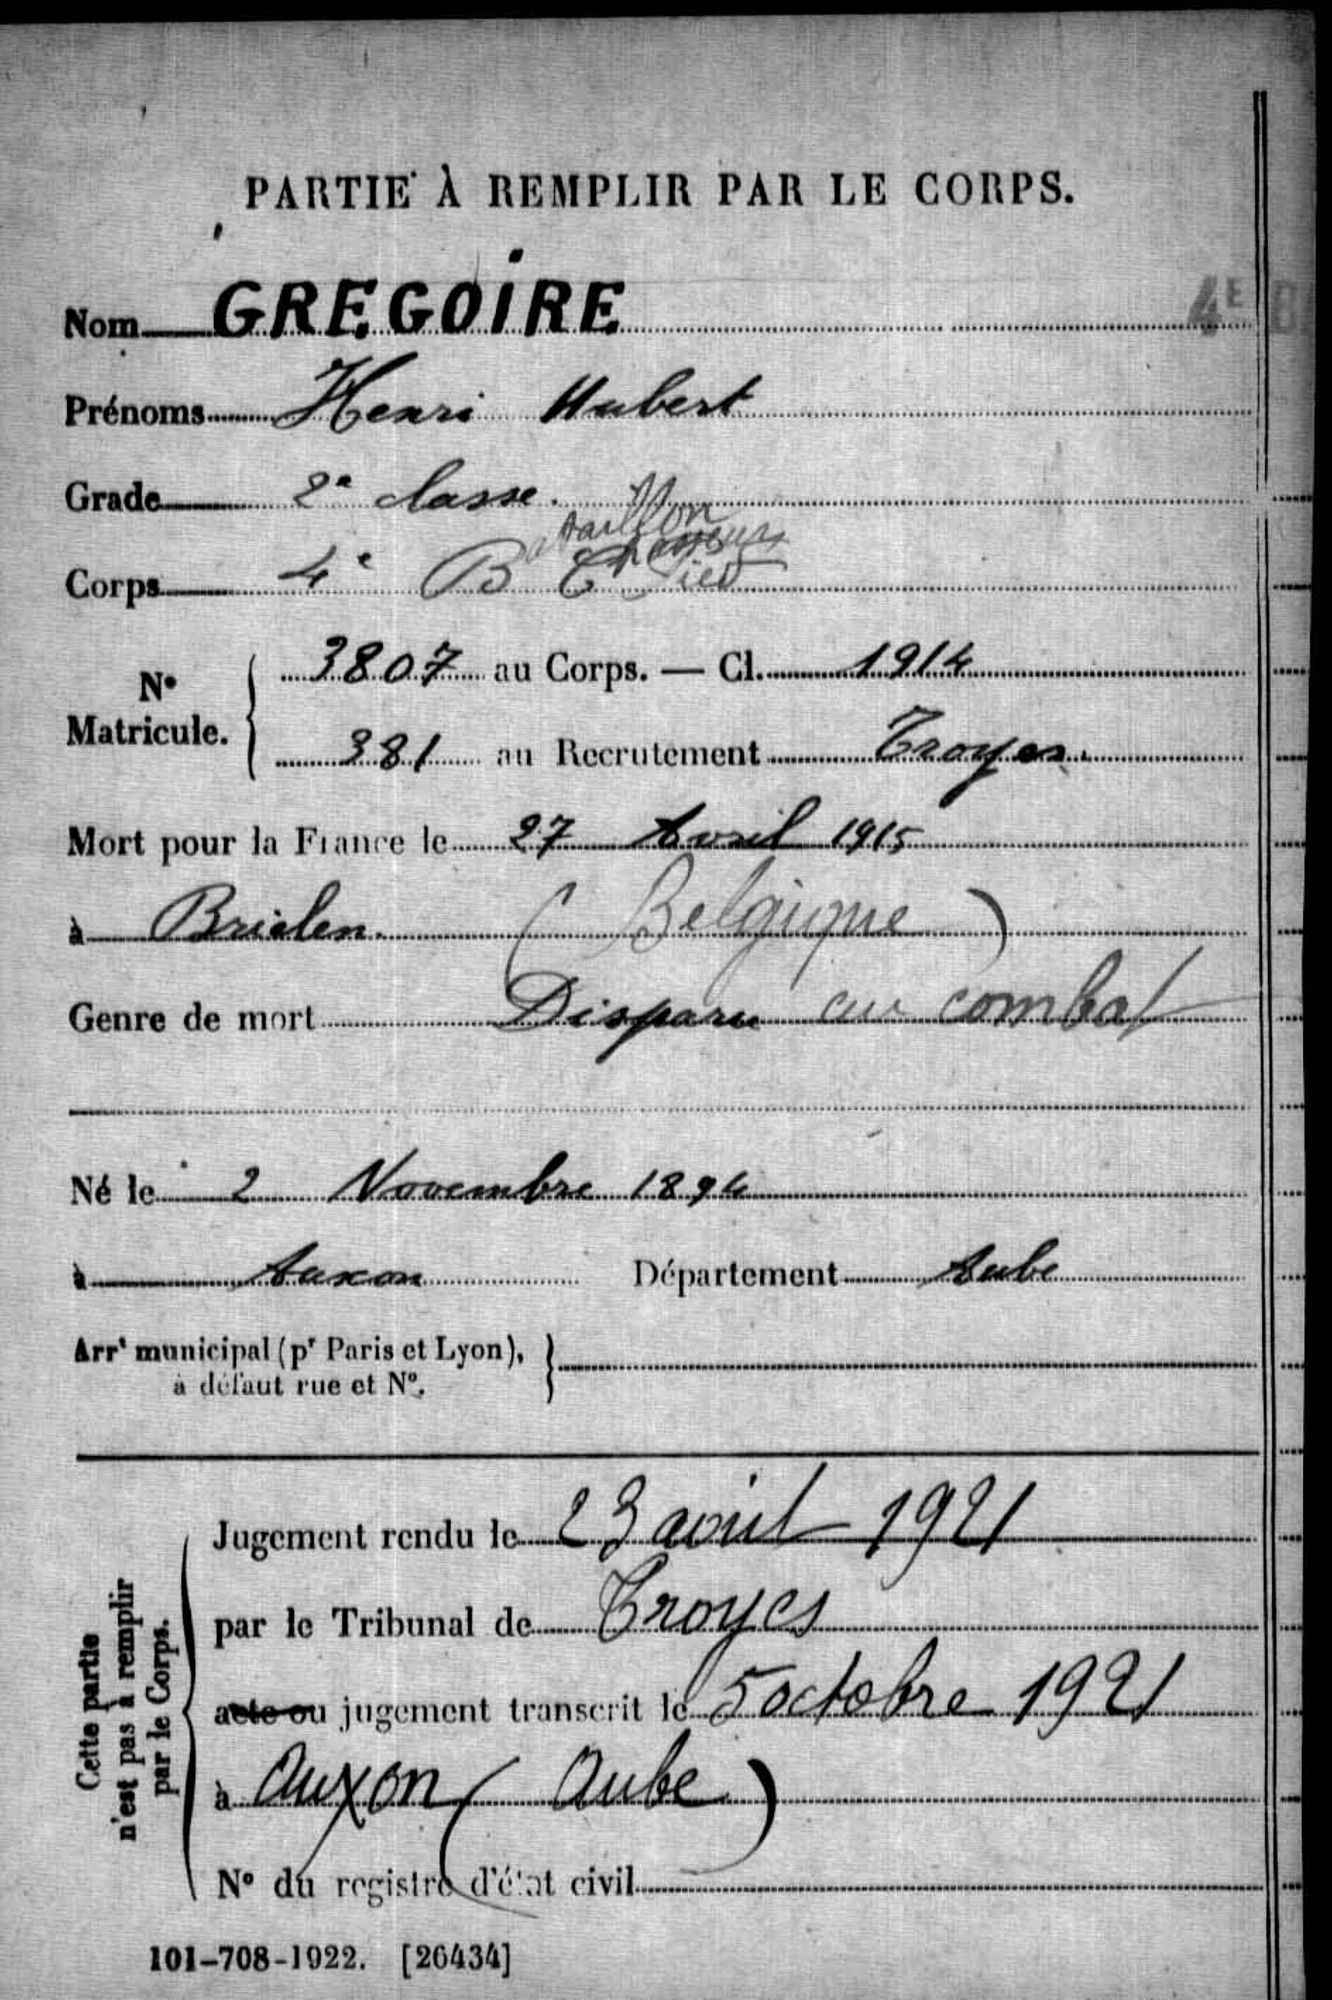 PARTIE À REMPLIR PAR LE CORPS.
Nom GREGOIRE
4E B
Prénoms Henri Hubert
Grade 2e classe.
Corps 4e Bataillon Chasseurs Pied
No Matricule. 3807 au Corps. — Cl. 1914
381 au Recrutement Troyes.
Mort pour la France le 27 Avril 1915
à Brielen. (Belgique)
Genre de mort Disparu au combat
Né le 2 Novembre 1894
à Auxon Département Aube
Arrt municipal (pr Paris et Lyon),
à défaut rue et No.
Cette partie
n'est pas à remplir
par le Corps.
Jugement rendu le 23 avril 1921
par le Tribunal de Troyes
acte ou jugement transcrit le 5 octobre 1921
à Auxon (Aube)
No du registre d'état civil
101-708-1922. [26434]